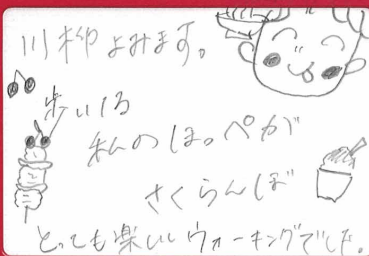 川柳よみます。
歩いてる
私のほっぺが
さくらんぼ
とっても楽しいウォーキングでした。